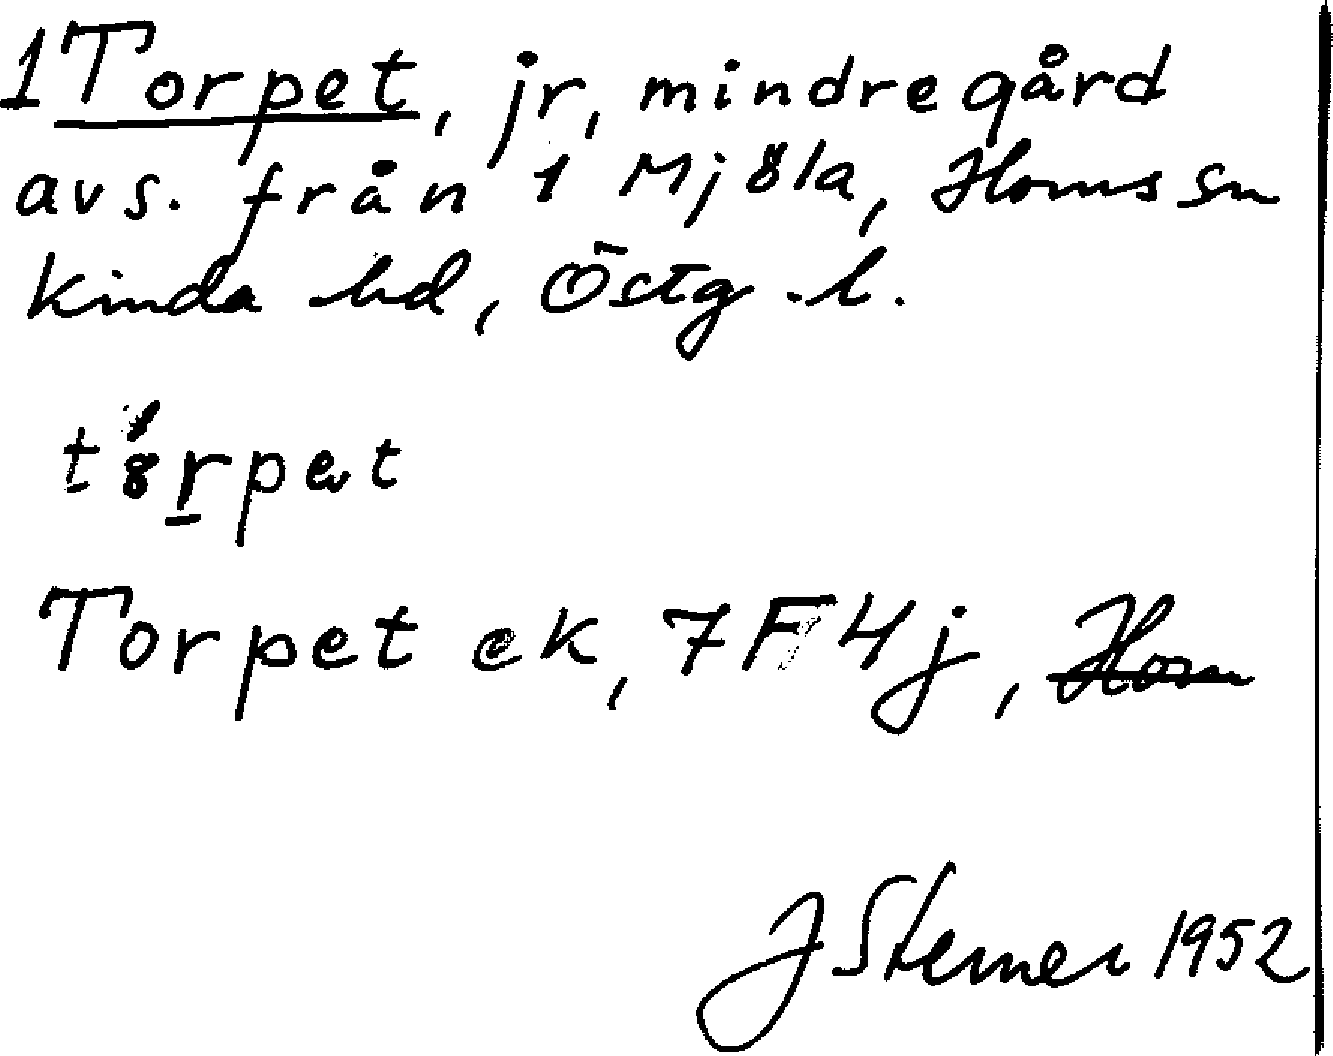 1 Torpet, jr, mindre gård
avs. från 1 Mjöla, Horns sn
Kinda hd, Östg. l.
Torpet ek, 7F4j, Horn
J Sterner 1952